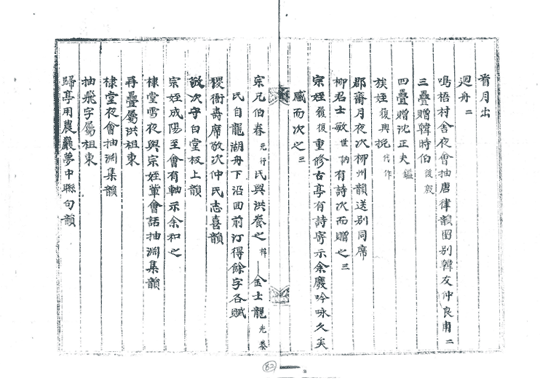 看月出
迴舟二
鳴梧村舍夜會抽唐律韻留別韓友仲良甫二
三疊贈韓時伯後毅
四疊贈沈正夫
族姪復興挽代作
郡齋月夜次柳州韻送別同席
柳君士敬世訥有詩次而贈之三
宗姪復後重修古亭有詩寄示余廢吟咏久矣
感而次之三
宗兄伯春元行氏與洪養之梓金士龍光
民自龍湖舟下沿回前汀得餘字各賦
稷衙壽席敬次仲氏志喜韻
敬次守白堂板上韻
宗姪咸陽至會有軸示余和之
棣堂雪夜與宗姪輩會話抽淵集韻
再疊屬洪祖東
棣堂夜會抽淵集韻
抽飛字屬祖東
歸亭用農巖夢中聯句韻